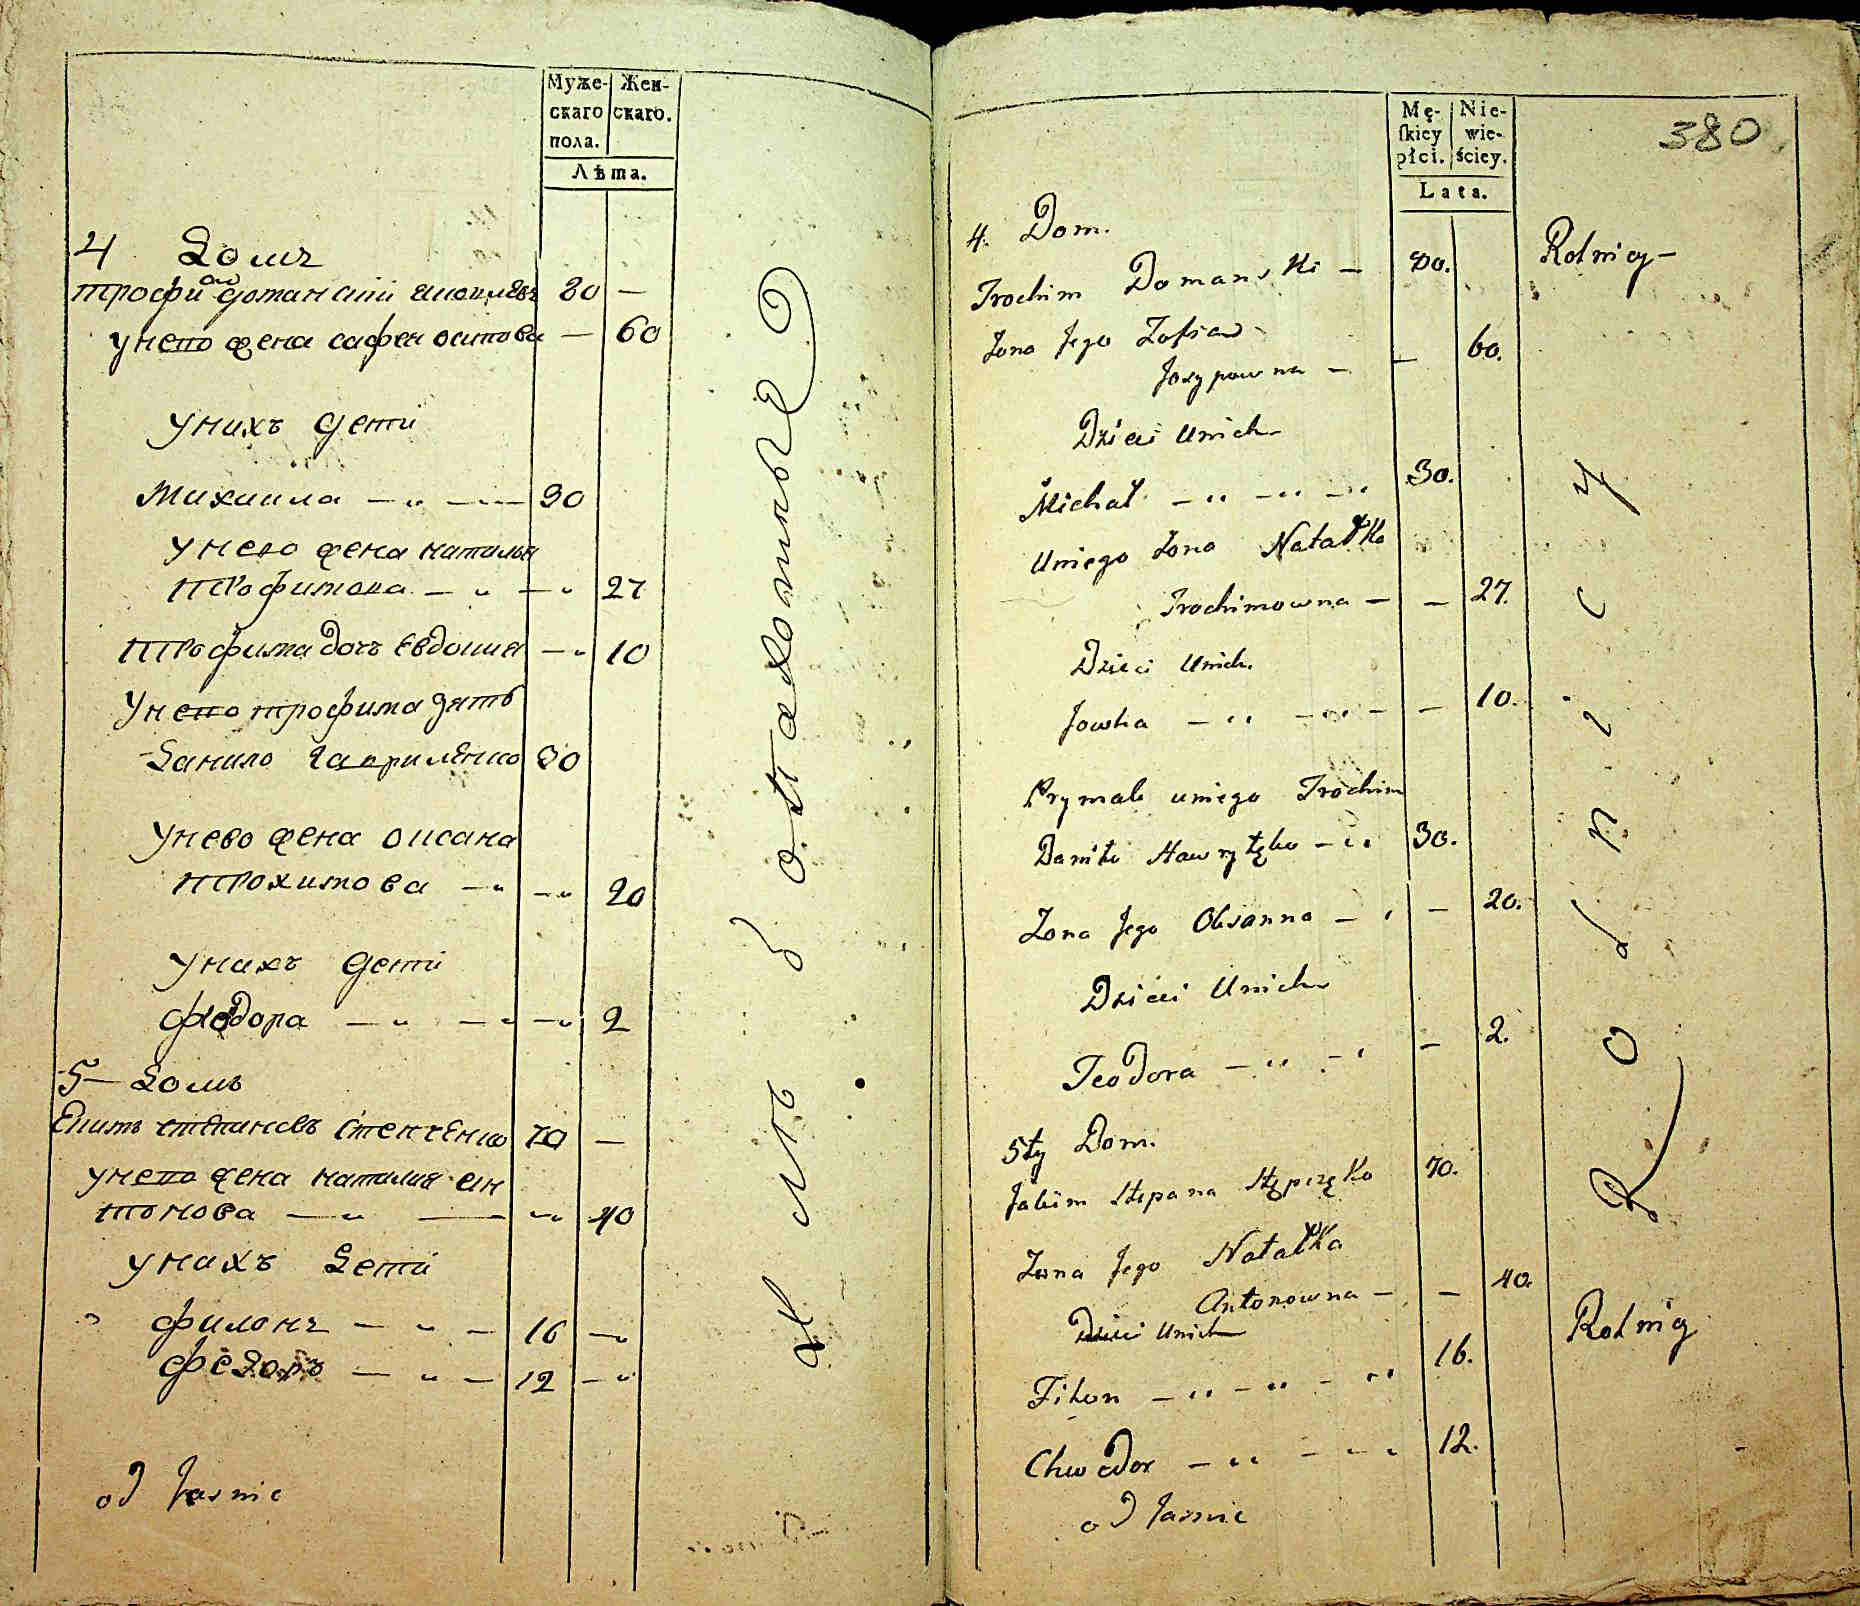 Муже-
скаго
пола.
Жен-
скаго.
Лѣта.
4 Домъ
трофи доманскій 80 —
унего жена софея осипова — 60
унихъ дети
Михаила — „ — 30
унево жена наталья
трофимова — „ — „ 27
трофима дочъ Евдокия — „ 10
унего трофима зять
Данило Гавриленко 30
унево жена Оксана
трохимова — „ — „ 20
унихъ дети
федора — „ — „ — „ 2
5 — Домъ
Екимъ степановъ Степченко 70 —
унего жена наталия ан
тонова — „ — — „ 40
унихъ Дети
филонъ — „ — 16 — „
федоръ — „ — 12 — „
od Jasnie
хлѣбопахотные
Mę-
ſkiey
płci.
Nie-
wie-
ściey.
Lata.
380
4. Dom.
Rolnicy —
Trochim Domanski — 80.
Zona Jego Zofia
Josypowna — — 60.
Dzieci Unich
Michał — „ — „ — „ 30.
Uniego Zona Natałka
Trochimowna — — 27.
Dzieci Unich.
Jowka — „ — „ — — 10.
Prymak uniego Trochim
Daniło Hawryłęko — „ 30.
Zona Jego Oksanna — „ — 20.
Dzieci Unich
Teodora — „ — „ — 2.
5ty Dom.
Jakim Stepana Stępczęko 70.
Zona Jego Natałka
Antonowna — — 40.
Dzieci Unich
Rolnicy
Fiłon — „ — „ — „ 16.
Chwedor — „ — „ 12.
od Jasnie
od Jasnie
Rolnicy